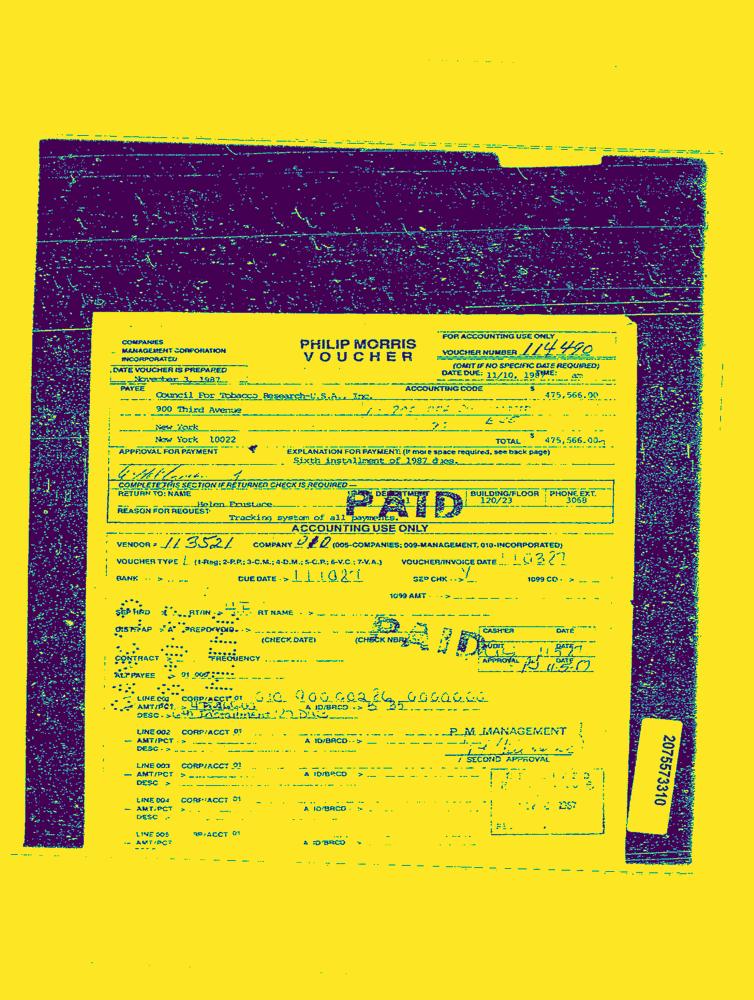 COMPANIES
MANAGEMENT CORPORATION
INCORPORATED
PHILIP MORRIS
VOUCHER
FOR ACCOUNTING USE ONLY
VOUCHER NUMBER 114490
(OMIT IF NO SPECIFIC DATE REQUIRED)
DATE VOUCHER IS PREPARED
November 3, 1987
DATE DUE: 11/10, 1987 TIME:
PAYEE ACCOUNTING CODE $
Council For Tobacco Research-U.S.A., Inc. 475,566.00
900 Third Avenue
New York
New York 10022 TOTAL $ 475,566.00
APPROVAL FOR PAYMENT EXPLANATION FOR PAYMENT: (If more space required, see back page)
Sixth installment of 1987 dues.
COMPLETE THIS SECTION IF RETURNED CHECK IS REQUIRED
RETURN TO: NAME DEPARTMENT BUILDING/FLOOR PHONE EXT.
Helen 120/23 3068
REASON FOR REQUEST:
Tracking system of all payments.
PAID
ACCOUNTING USE ONLY
VENDOR # 113521 COMPANY 010 (005-COMPANIES; 009-MANAGEMENT, 010-INCORPORATED)
VOUCHER TYPE 1 (1-Reg; 2-P.P.; 3-C.M.; 4-D.M.; 5-C.P.; 6-V.C.; 7-V.A.) VOUCHER/INVOICE DATE 110387
BANK -> DUE DATE -> 111087 SEP CHK -> Y 1099 CD ->
1099 AMT ->
RT/IN -> RT NAME ->
PREPD/VOID
(CHECK DATE) (CHECK NBR)
PAID
CASHIER DATE
AUDIT DATE
APPROVAL DATE
CONTRACT FREQUENCY
ALT PAYEE 01
LINE 001 CORP/ACCT 01 010
AMT/PCT > A ID/BRCD -->
DESC -> 6th Installment
LINE 002 CORP/ACCT 01
AMT/PCT > A ID/BRCD -->
DESC ->
P M MANAGEMENT
SECOND APPROVAL
LINE 003 CORP/ACCT 01
AMT/PCT > A ID/BRCD -->
DESC >
LINE 004 CORP/ACCT 01
AMT/PCT > A ID/BRCD -->
DESC >
LINE 005 CORP/ACCT 01
AMT/PCT > A ID/BRCD -->
2075573310